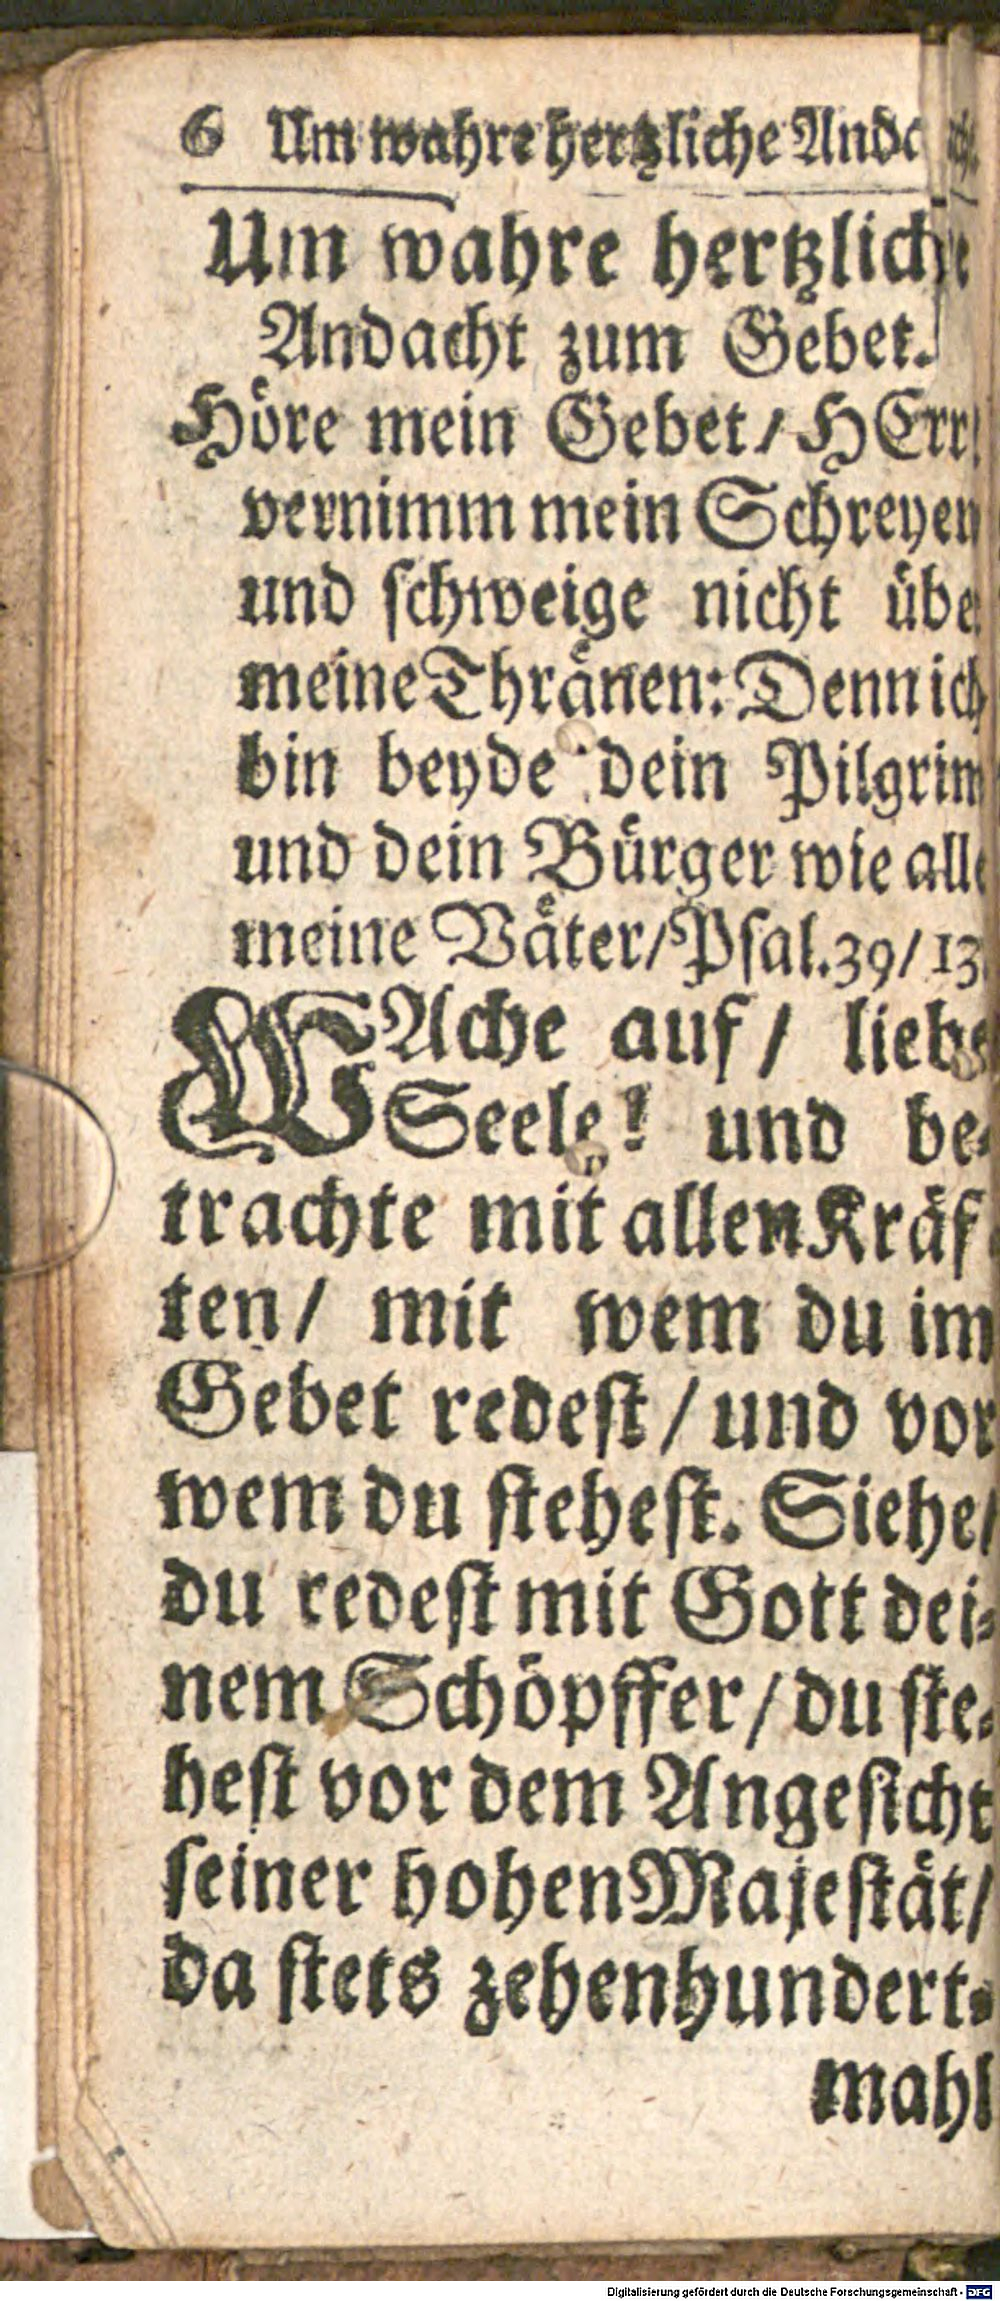 6 Um wahre hertzliche Anda
Um wahre hertzliche
Andacht zum Gebet.
Höre mein Gebet / HErr!
vernimm mein Schreyen
und schweige nicht übe
meine Thränen: Denn ich
bin beyde dein Pilgrim
und dein Bürger wie alle
meine Väter / Psal. 39 / 13
WAche auf / liebe
Seele! und be-
trachte mit allen Kräf
ten / mit wem du im
Gebet redest / und vor
wem du stehest. Siehe /
du redest mit Gott dei-
nem Schöpffer / du ste-
hest vor dem Angesicht
seiner hohen Majestät /
da stets zehenhundert-
mahl
Digitalisierung gefördert durch die Deutsche Forschungsgemeinschaft - DFG